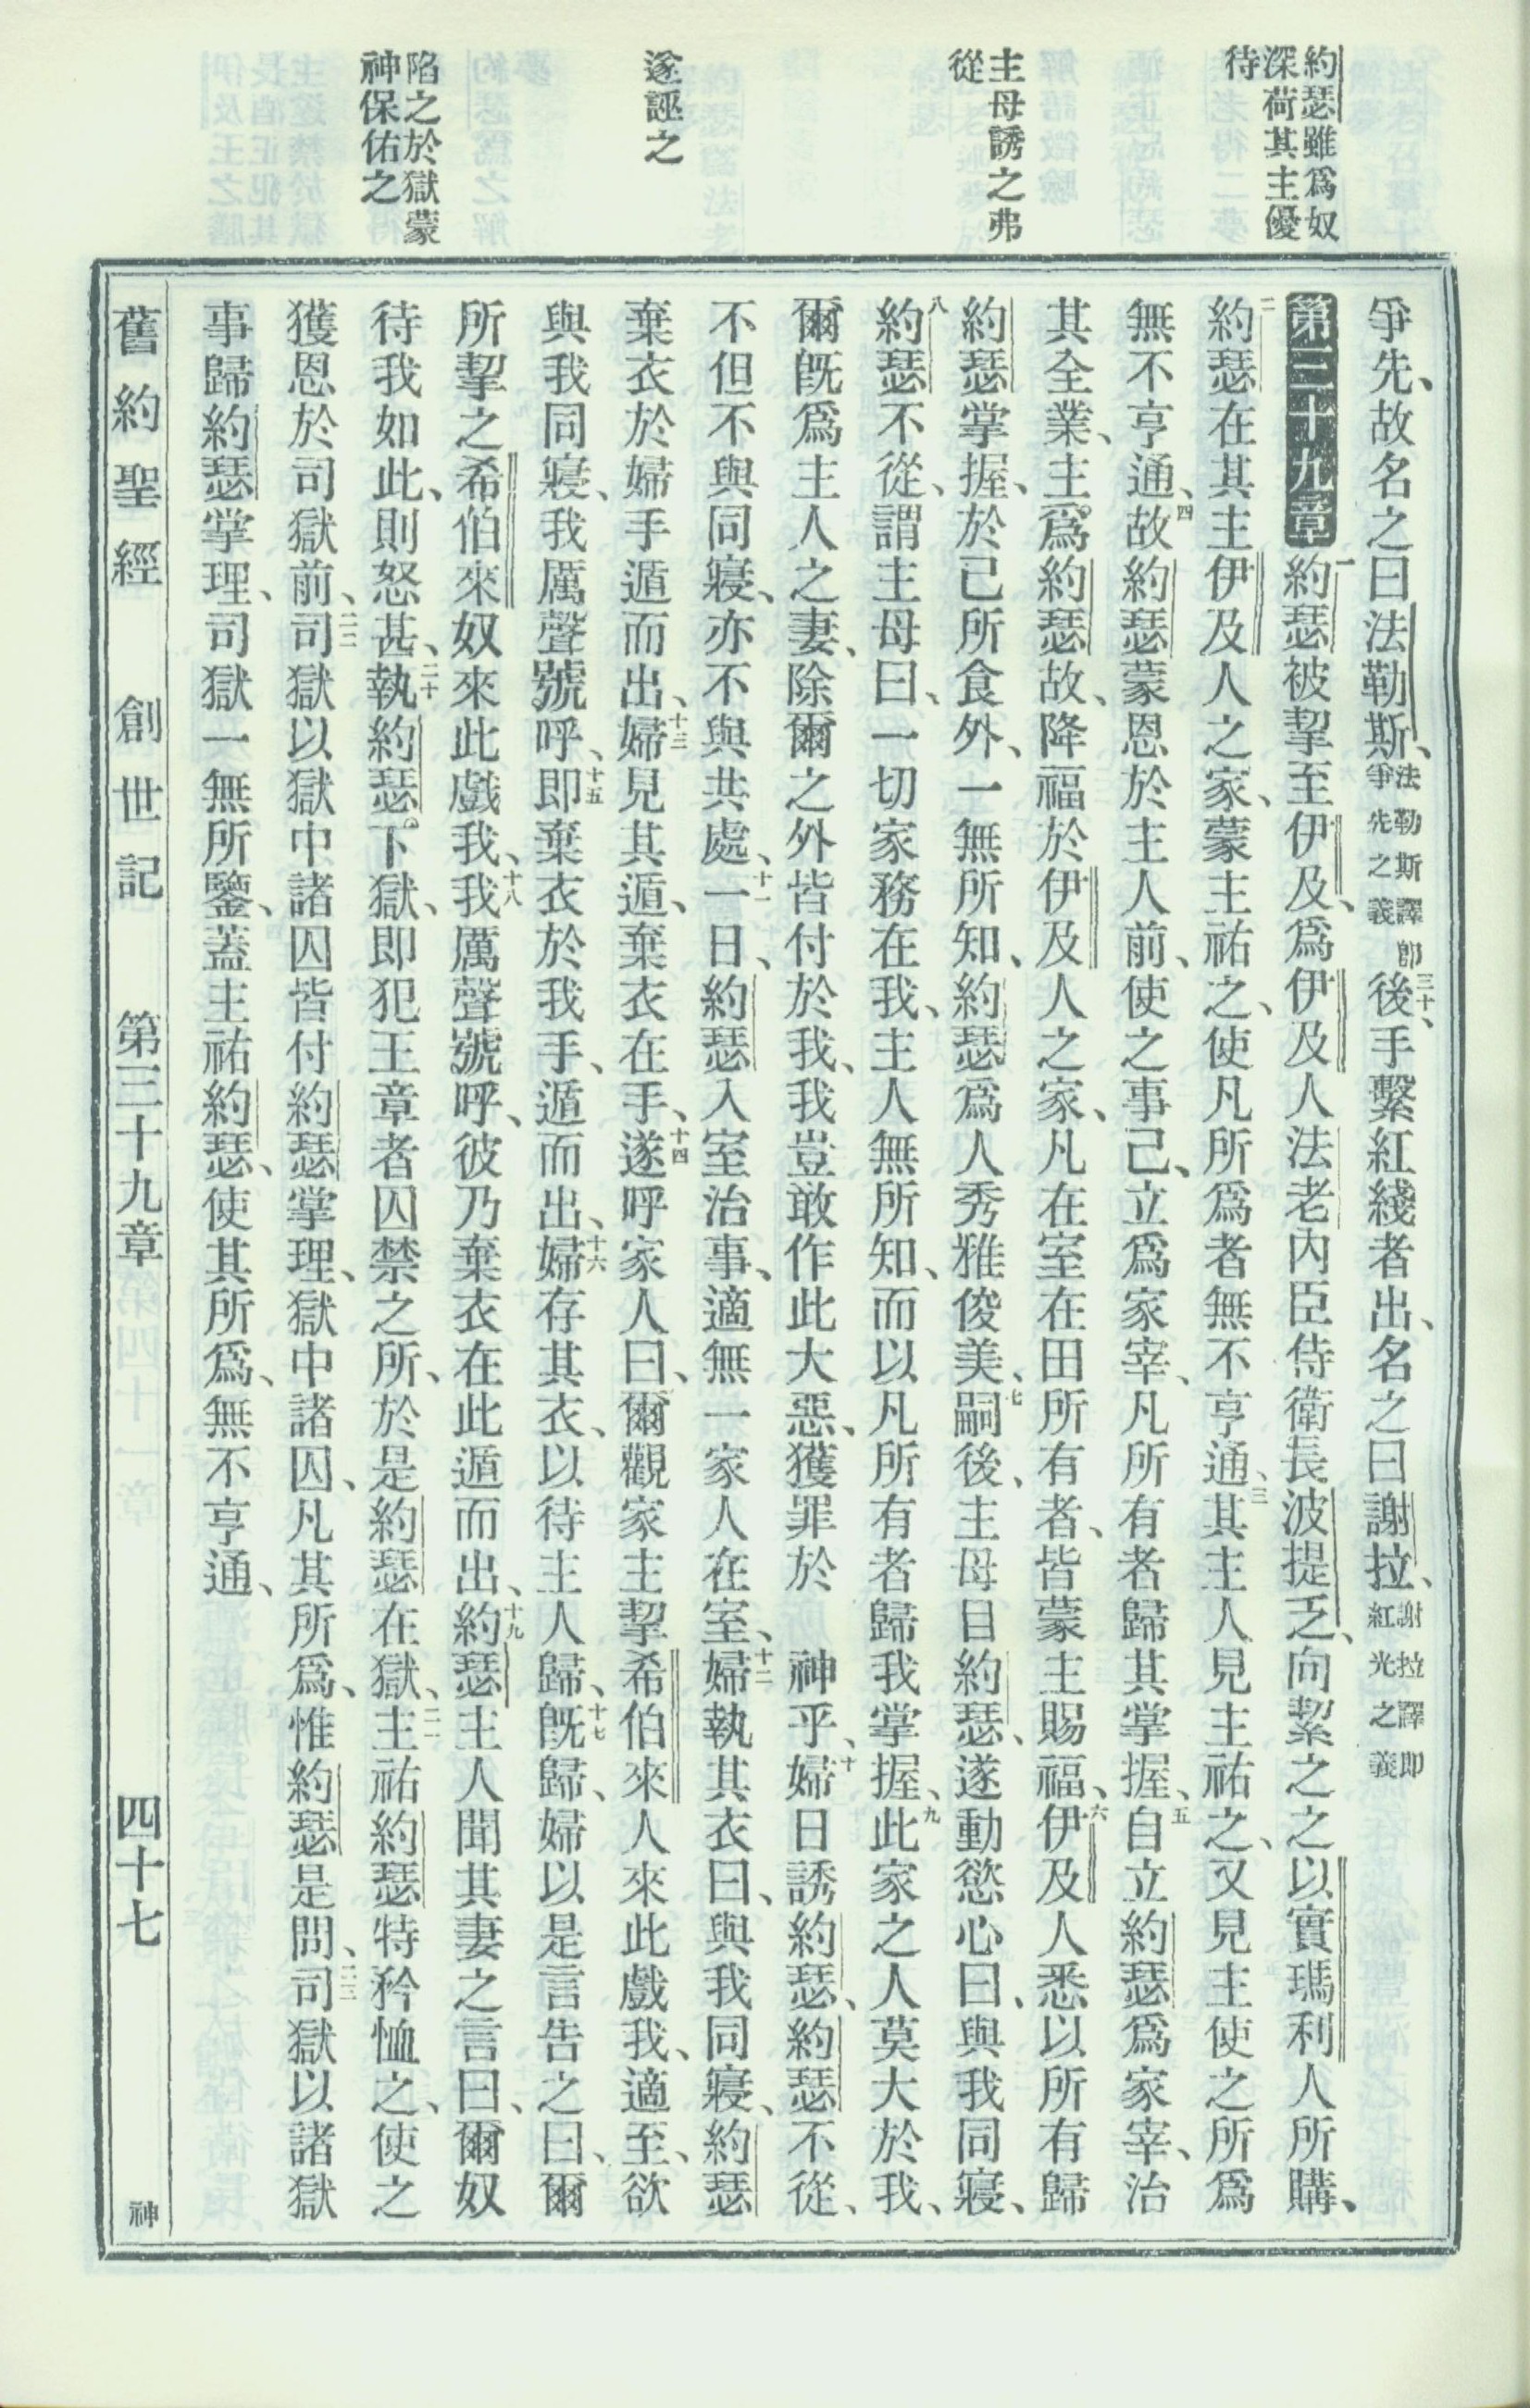 約瑟雖爲奴
深荷其主優
待
主母誘之弗
從
遂誣之
陷之於獄蒙
神保佑之
爭先、故名之曰法勒斯、法勒斯譯卽爭先之義三十後、手繫紅綫者出、名之曰謝拉、謝拉譯卽紅光之義
第三十九章 一約瑟被挈至伊及、爲伊及人法老內臣侍衛長波提乏、向絜之之以實瑪利人所購、
二約瑟在其主伊及人之家、蒙主祐之、使凡所爲者無不亨通、三其主人見主祐之、又見主使之所爲
無不亨通、四故約瑟蒙恩於主人前、使之事己、立爲家宰、凡所有者歸其掌握、五自立約瑟爲家宰、治
其全業、主爲約瑟故、降福於伊及人之家、凡在室在田所有者、皆蒙主賜福、六伊及人悉以所有歸
約瑟掌握、於己所食外、一無所知、約瑟爲人秀雅俊美、七嗣後、主母目約瑟、遂動慾心曰、與我同寢、
八約瑟不從、謂主母曰、一切家務在我、主人無所知、而以凡所有者歸我掌握、九此家之人莫大於我、
爾旣爲主人之妻、除爾之外皆付於我、我豈敢作此大惡、獲罪於 神乎、十婦日誘約瑟、約瑟不從、
不但不與同寢、亦不與共處、十一一日、約瑟入室治事、適無一家人在室、十二婦執其衣曰、與我同寢、約瑟
棄衣於婦手遁而出、十三婦見其遁、棄衣在手、十四遂呼家人曰、爾觀家主挈希伯來人來此戲我、適至、欲
與我同寢、我厲聲號呼、十五卽棄衣於我手、遁而出、十六婦存其衣、以待主人歸、十七旣歸、婦以是言告之曰、爾
所挈之希伯來奴來此戲我、十八我厲聲號呼、彼乃棄衣在此遁而出、十九約瑟主人聞其妻之言曰、爾奴
待我如此、則怒甚、二十執約瑟。下獄、卽犯王章者囚禁之所、於是約瑟在獄、二一主祐約瑟特矜恤之、使之
獲恩於司獄前、二二司獄以獄中諸囚皆付約瑟掌理、獄中諸囚、凡其所爲、惟約瑟是問、二三司獄以諸獄
事歸約瑟掌理、司獄一無所鑒、蓋主祐約瑟、使其所爲、無不亨通、
舊約聖經 創世記 第三十九章 四十七 神